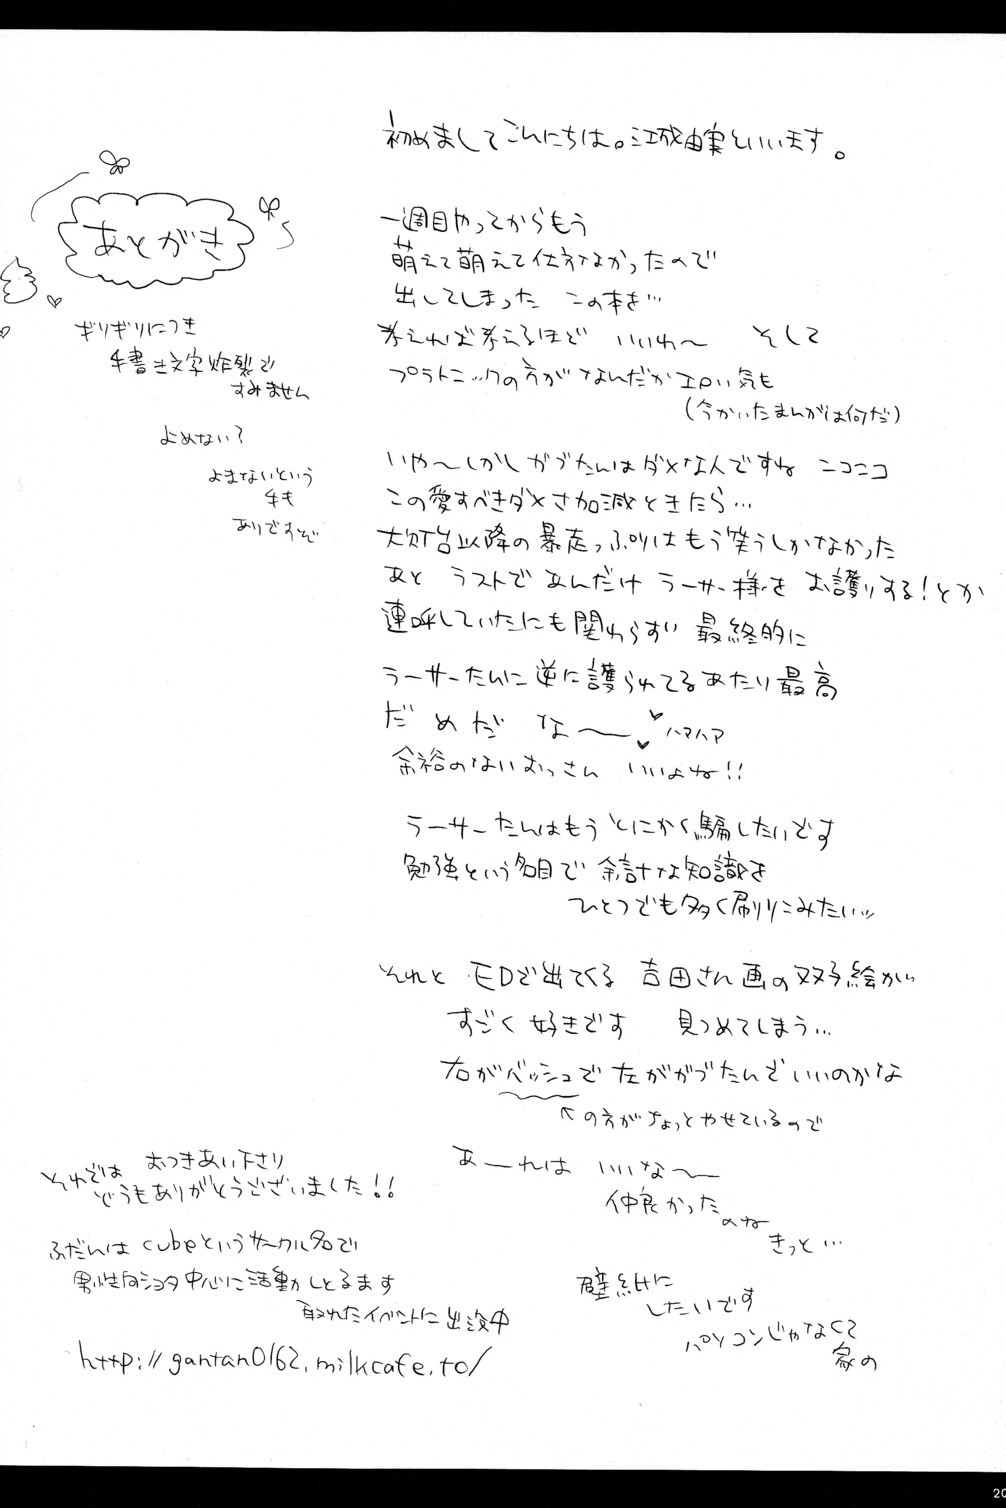 初めましてこんにちは。江成由実といいます。
あとがき
ギリギリにつき
手書き文字炸裂で
すみません
よめない?
よまないという
手も
ありですぞ
一週目やってからもう
萌えて萌えて仕方なかったので
出してしまった この本を…
考えれば考えるほど いいわ〜 そして
プラトニックの方がなんだかエロい気も
(今かいたまんがは何だ)
いや〜しかしガブたんはダメな人ですね ニコニコ
この愛すべきダメさ加減ときたら…
大灯台以降の暴走っぷりはもう笑うしかなかった
あと ラストであんだけ ラーサー様を お護りする!とか
連呼していたにも関わらずい 最終的に
ラーサーたんに逆に護られてるあたり最高
だめだ な〜 ハアハア
余裕のないおっさん いいよね!!
ラーサーたんはもうとにかく騙したいです
勉強という名目で 余計な知識を
ひとつでも多く刷りこみたい
それと EDで出てくる 吉田さん画の双子絵が
すごく好きです 見つめてしまう…
右がバッシュで左がガブたんでいいのかな
の方がちょっとやせているので
あーれは いいな〜
仲良かった
のね
きっと…
壁紙に
したいです
パソコンじゃなくて
家の
それでは おつきあい下さり
どうもありがとうございました!!
ふだんは cubeというサークル名で
男性向ショタ中心に活動しとるます
取れたイベントに出没中
http://gantan0162.milkcafe.to/
20